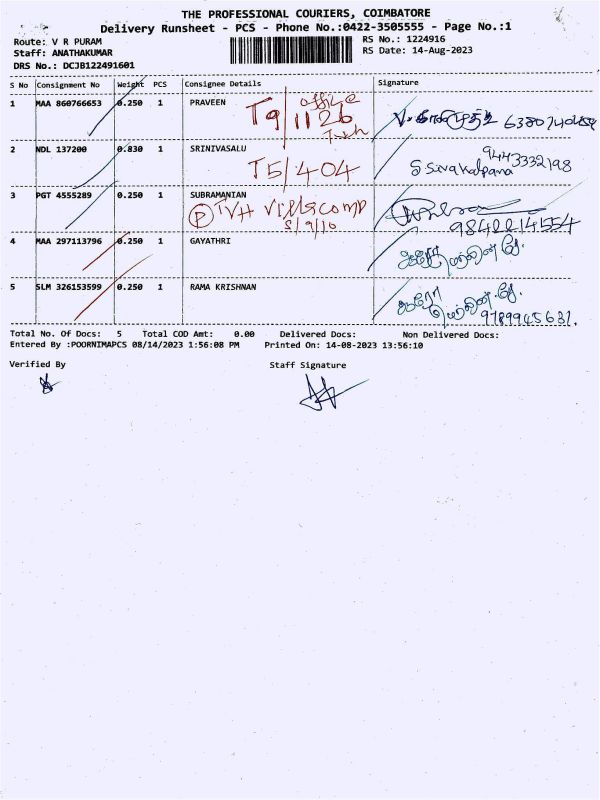 THE PROFESSIONAL COURIERS, COIMBATORE
Delivery Runsheet - PCS - Phone No.:0422-3505555 - Page No.:1
Route: V R PURAM
RS No.: 1224916
Staff: ANATHAKUMAR
RS Date: 14-Aug-2023
DRS No.: DCJB122491601
S No Consignment No Weight PCS Consignee Details Signature
1 MAA 860766653 0.250 1 PRAVEEN
office
T9/1126
2 NDL 137200 0.830 1 SRINIVASALU
T5/404
9443332198
S Sivakalpana
3 PGT 4555289 0.250 1 SUBRAMANIAN
P TVH
5/9/10
9842214554
4 MAA 297113796 0.250 1 GAYATHRI
5 SLM 326153599 0.250 1 RAMA KRISHNAN
9789945631
Total No. Of Docs: 5 Total COD Amt: 0.00 Delivered Docs: Non Delivered Docs:
Entered By :POORNIMAPCS 08/14/2023 1:56:08 PM Printed On: 14-08-2023 13:56:10
Verified By Staff Signature